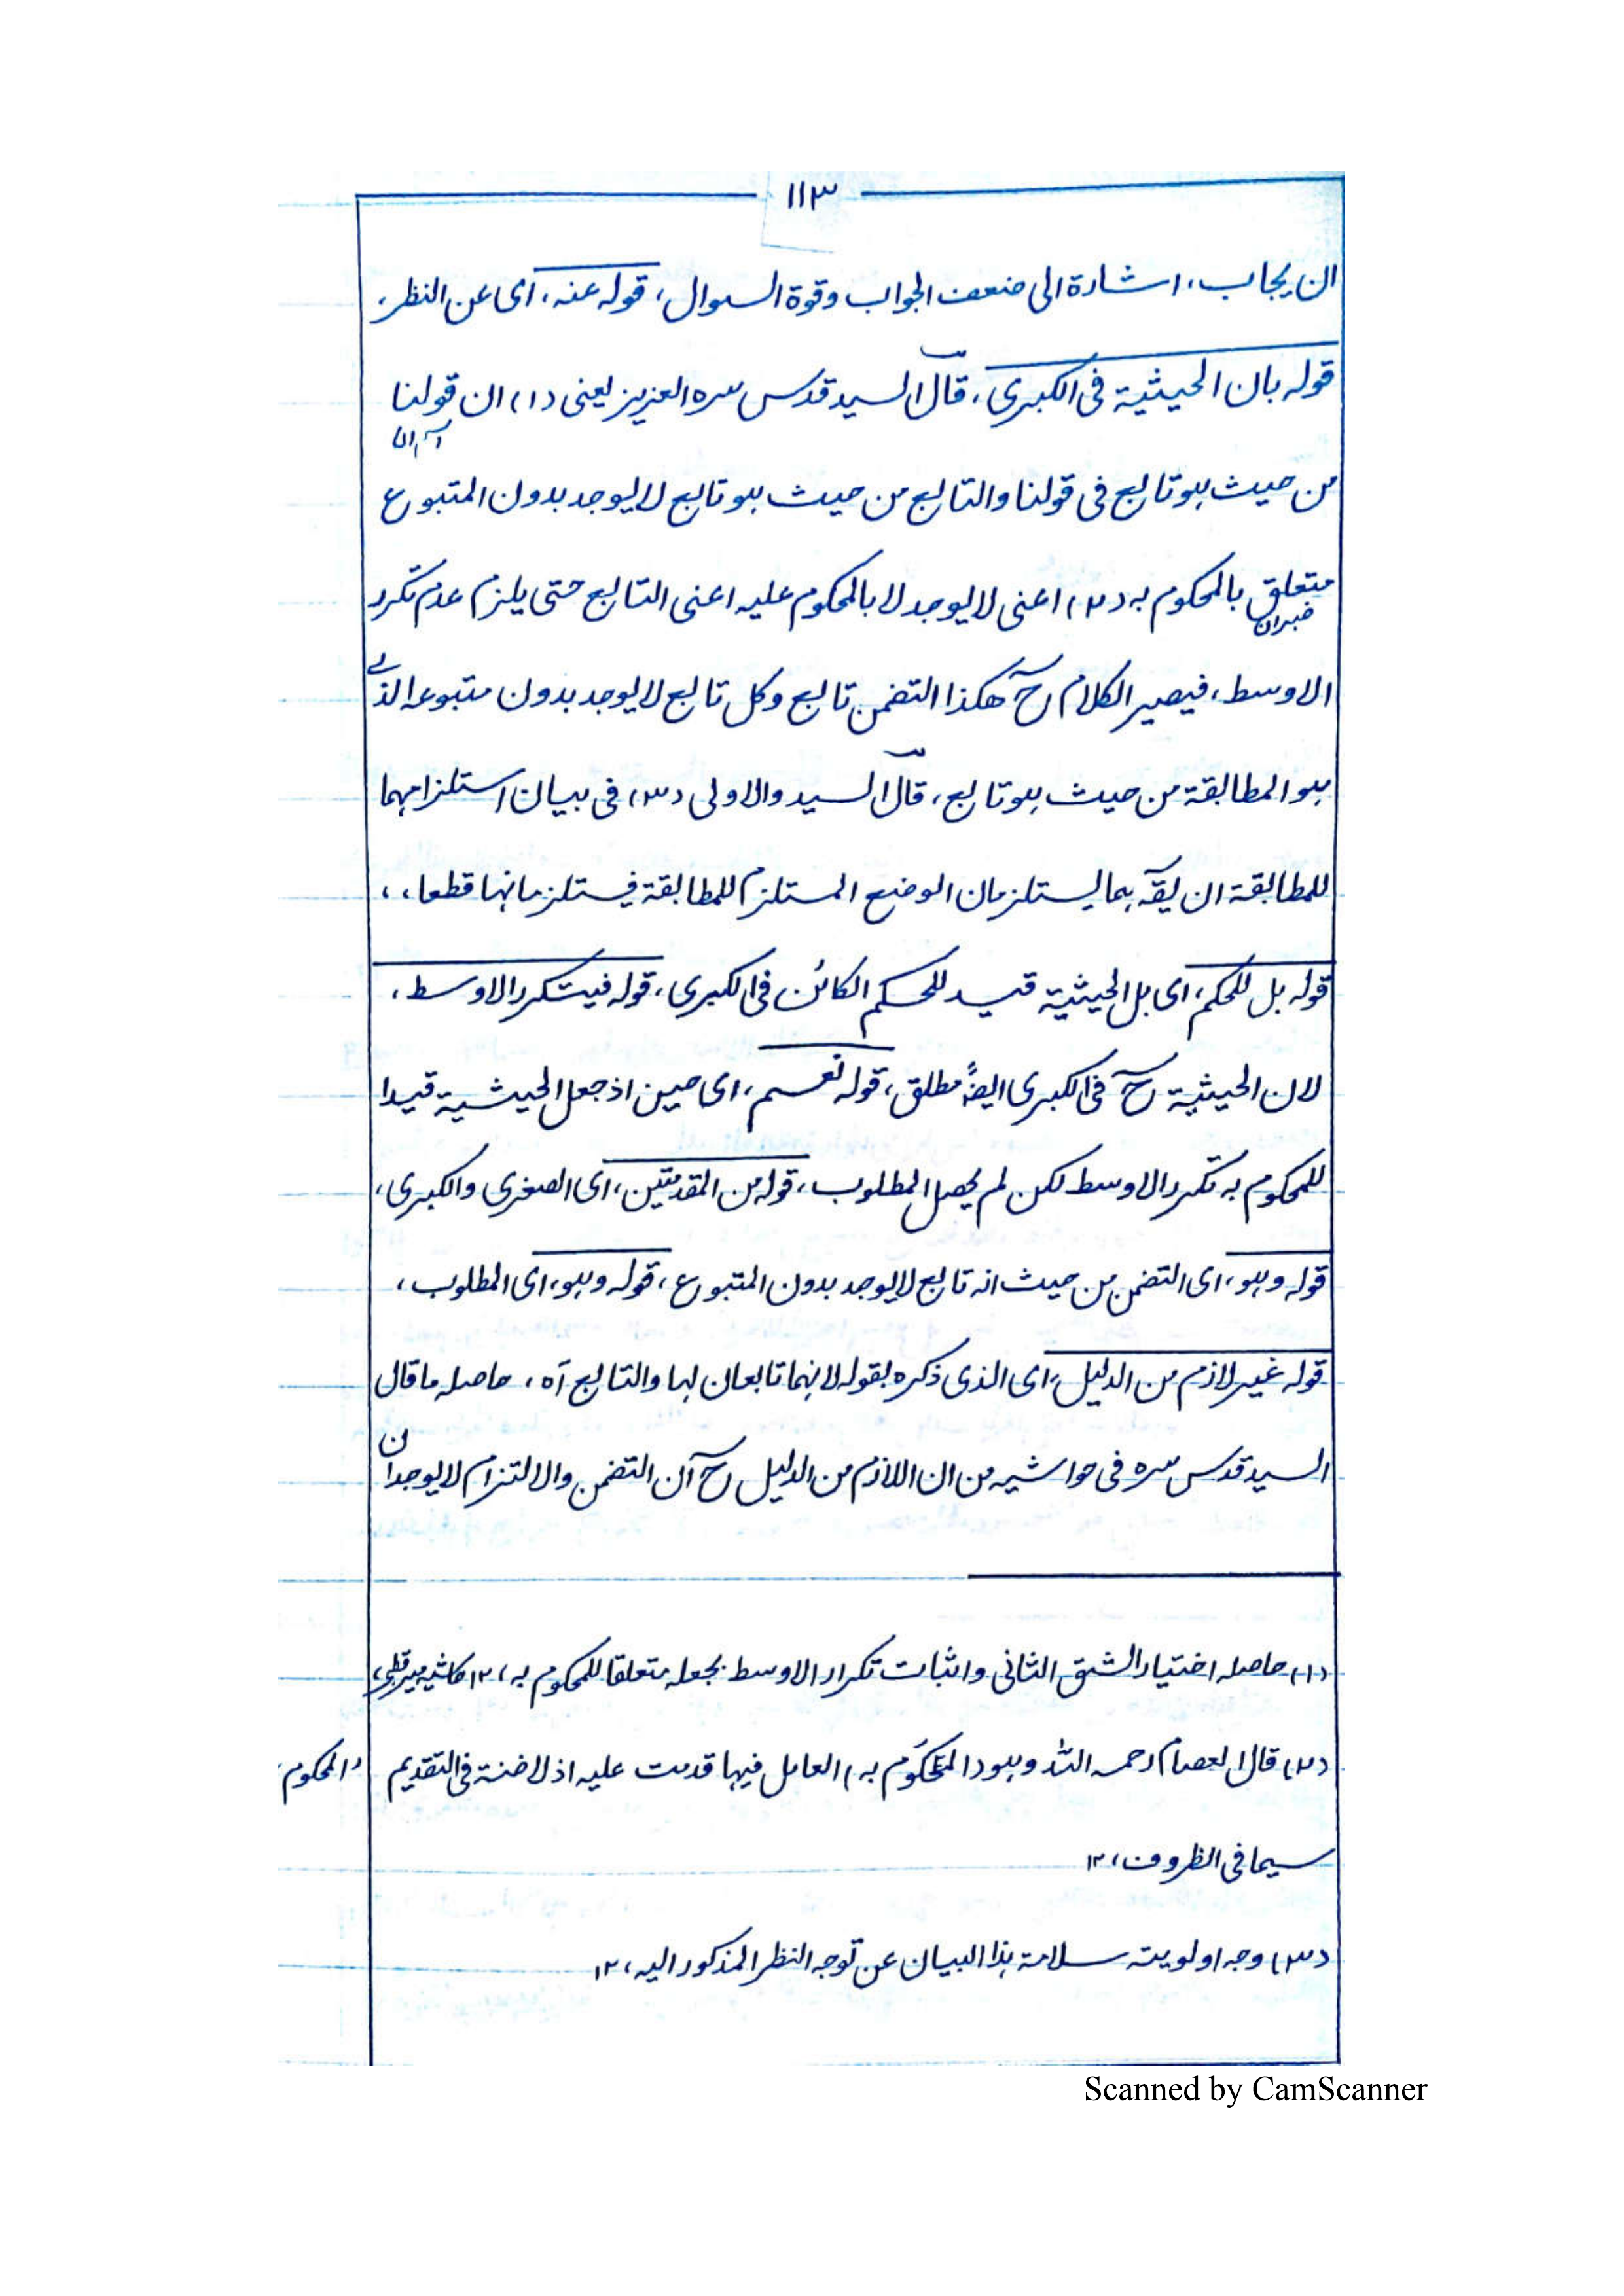 ١١٣
ان يجاب، اشارة الى ضعف الجواب وقوة السوال، قوله عنه، اى عن النظر،
قوله بان الحيثية فى الكبرى، قال السيد قدس سره العزيز يعنى (١) ان قولنا
اسم ان
من حيث هو تابع فى قولنا والتابع من حيث هو تابع لا يوجد بدون المتبوع
متعلق بالمحكوم به (٢) اعنى لا يوجد لا بالمحكوم عليه اعنى التابع حتى يلزم عدم تكرر
خبر ان
الاوسط، فيصير الكلام ح هكذا التضمن تابع وكل تابع لا يوجد بدون متبوعه الذى
هو المطابقة من حيث هو تابع، قال السيد والاولى (٣) فى بيان استلزامهما
للمطابقة ان يقه بهما يستلزمان الوضع المستلزم للمطابقة فيستلزمانها قطعا،،
قوله بل للحكم، اى بل الحيثية قيد للحكم الكائن فى الكبرى، قوله فيتكرر الاوسط،
لان الحيثية ح فى الكبرى ايضًا مطلق، قوله نعم، اى حين اذ جعل الحيثية قيدا
للمحكوم به تكرر الاوسط لكن لم يحصل المطلوب، قوله من المقدمتين، اى الصغرى والكبرى،
قوله وهو، اى التضمن من حيث انه تابع لا يوجد بدون المتبوع، قوله وهو، اى المطلوب،
قوله غير لازم من الدليل، اى الذى ذكره بقوله لانهما تابعان لها والتابع آه، حاصله ما قال
السيد قدس سره فى حواشيه من ان اللازم من الدليل ح ان التضمن والالتزام لا يوجدان
(١) حاصله اختيار الشق الثانى واثبات تكرار الاوسط بجعله متعلقا للمحكوم به، ١٢ حاشيه مير قطبى،
(٢) قال العصام رحمه الله وهو (المحكوم به) العامل فيها قدمت عليه اذ لا ضنة فى التقديم
المحكوم
سيما فى الظروف، ١٢
(٣) وجه اولويته سلامة هذا البيان عن توجه النظر المذكور اليه، ١٢
Scanned by CamScanner